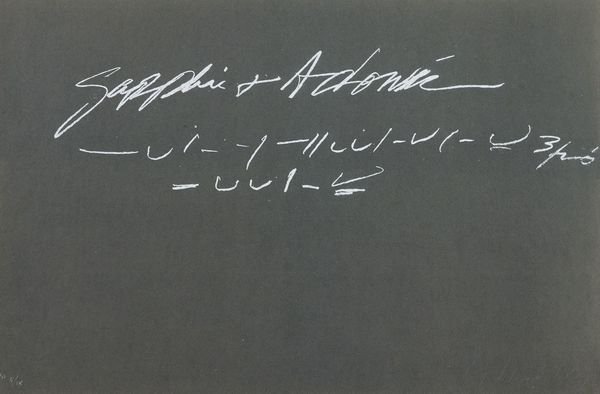 Sapphic + Adonic
— ∪ | — — | — || ∪ ∪ | — ∪ | — ∪ 3 fois
— ∪ ∪ | — ∪